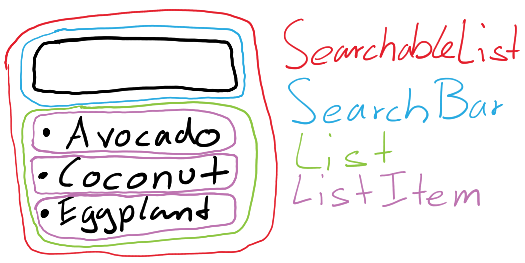 • Avocado
• Coconut
• Eggplant
SearchableList
SearchBar
List
ListItem